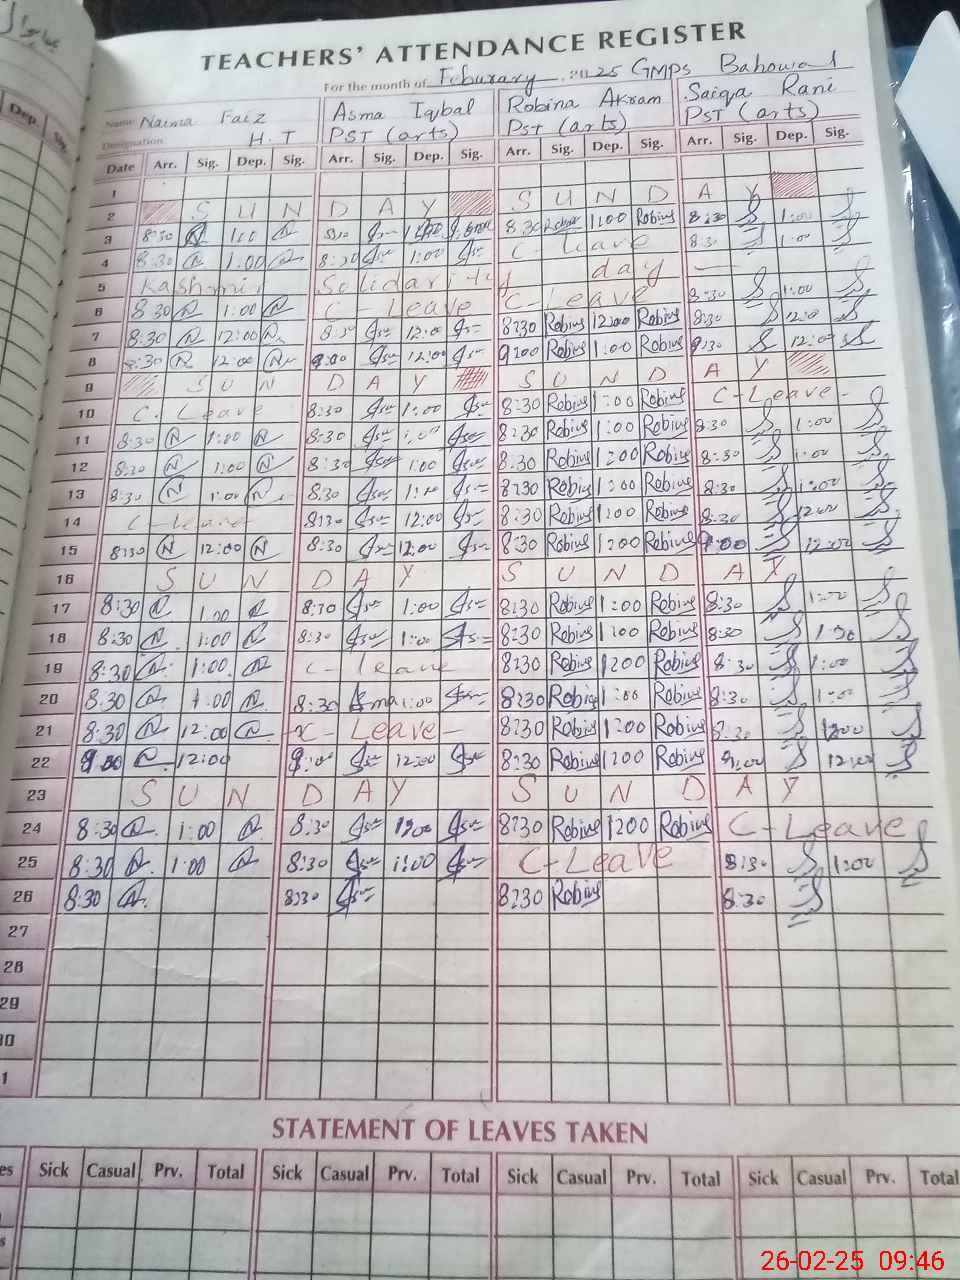 TEACHERS' ATTENDANCE REGISTER
For the month of Feburary, 2025 GMPS Bahowal
Name Naima Faiz Asma Iqbal Robina Akram Saiqa Rani
Designation H.T PST (arts) PST (arts) PST (arts)
Date Arr. Sig. Dep. Sig. Arr. Sig. Dep. Sig. Arr. Sig. Dep. Sig. Arr. Sig. Dep. Sig.
1
2 S U N D A Y S U N D A Y
3 8:30 1:00 8:30 1:00 8:30 1:00 Robina 8:30 1:00
4 8:30 1:00 8:30 1:00 C-Leave 8:30 1:00
5 Kashmir Solidarity day
6 8:30 1:00 C-Leave C-Leave 8:30 1:00
7 8:30 12:00 8:30 12:00 8:30 Robina 12:00 Robina 8:30 12:00
8 8:30 12:00 9:00 12:00 9:00 Robina 1:00 Robina 9:30 12:00
9 S U N D A Y S U N D A Y
10 C-Leave 8:30 1:00 8:30 Robina 1:00 Robina C-Leave-
11 8:30 1:00 8:30 1:00 8:30 Robina 1:00 Robina 8:30 1:00
12 8:30 1:00 8:30 1:00 8:30 Robina 1:00 Robina 8:30 1:00
13 8:30 1:00 8:30 1:00 8:30 Robina 1:00 Robina 8:30 1:00
14 C-Leave 8:30 12:00 8:30 Robina 1:00 Robina 8:30 12:00
15 8:30 12:00 8:30 12:00 8:30 Robina 1:00 Robina 9:00 12:00
16 S U N D A Y S U N D A Y
17 8:30 1:00 8:30 1:00 8:30 Robina 1:00 Robina 8:30 1:00
18 8:30 1:00 8:30 1:00 8:30 Robina 1:00 Robina 8:30 1:30
19 8:30 1:00 C-leave 8:30 Robina 1:00 Robina 8:30 1:00
20 8:30 1:00 8:30 Asma 1:00 8:30 Robina 1:00 Robina 8:30 1:00
21 8:30 12:00 C-Leave- 8:30 Robina 1:00 Robina 8:30 12:00
22 9:00 12:00 9:00 12:00 8:30 Robina 1:00 Robina 9:00 12:00
23 S U N D A Y S U N D A Y
24 8:30 1:00 8:30 1:00 8:30 Robina 1:00 Robina C-Leave
25 8:30 1:00 8:30 1:00 C-Leave 8:30 1:00
26 8:30 8:30 8:30 Robina 8:30
27
28
29
30
1
STATEMENT OF LEAVES TAKEN
es Sick Casual Prv. Total Sick Casual Prv. Total Sick Casual Prv. Total Sick Casual Prv. Total
26-02-25 09:46